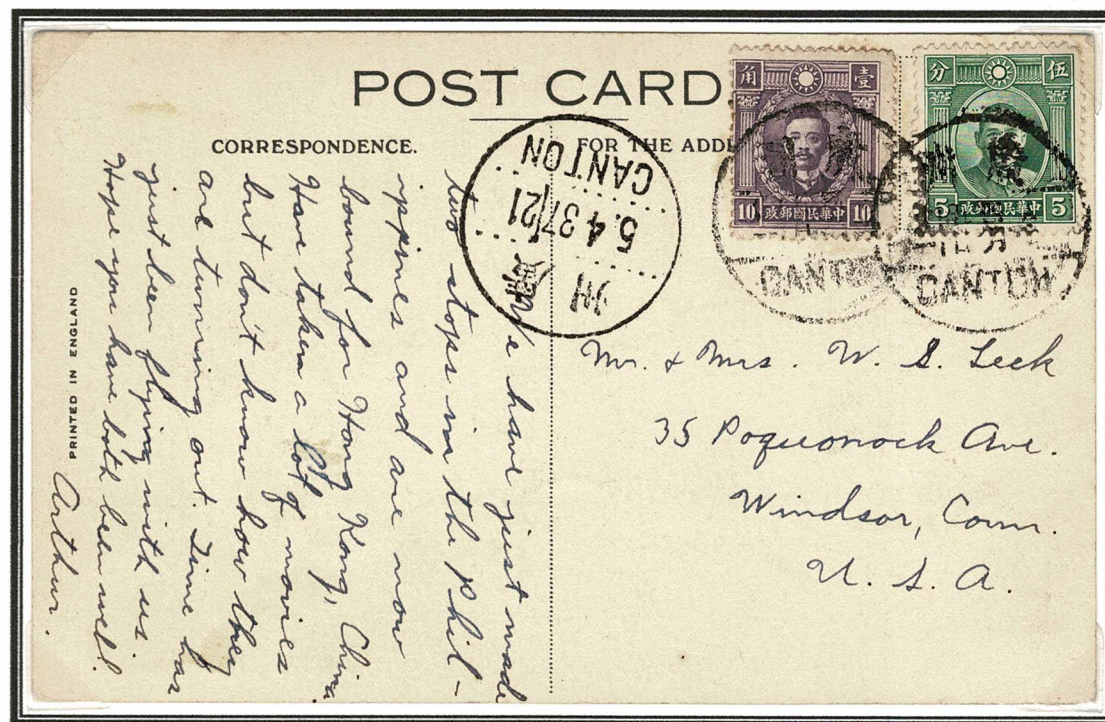 POST CARD
CORRESPONDENCE.
FOR THE ADD
角 壹
10 中華民國郵政 10
分 伍
5 中華民國郵政 5
CANTON
CANTON
CANTON
5 4 37 21
州
We have just made
two stops in the Phil-
ippines and are now
bound for Hong Kong, China
Have taken a lot of movies
but don't know how they
are turning out. Time has
just been flying with us.
Hope you have both been well.
Arthur.
Mr. & Mrs. W. S. Leek
35 Poquonock Ave.
Windsor, Conn.
U. S. A.
PRINTED IN ENGLAND